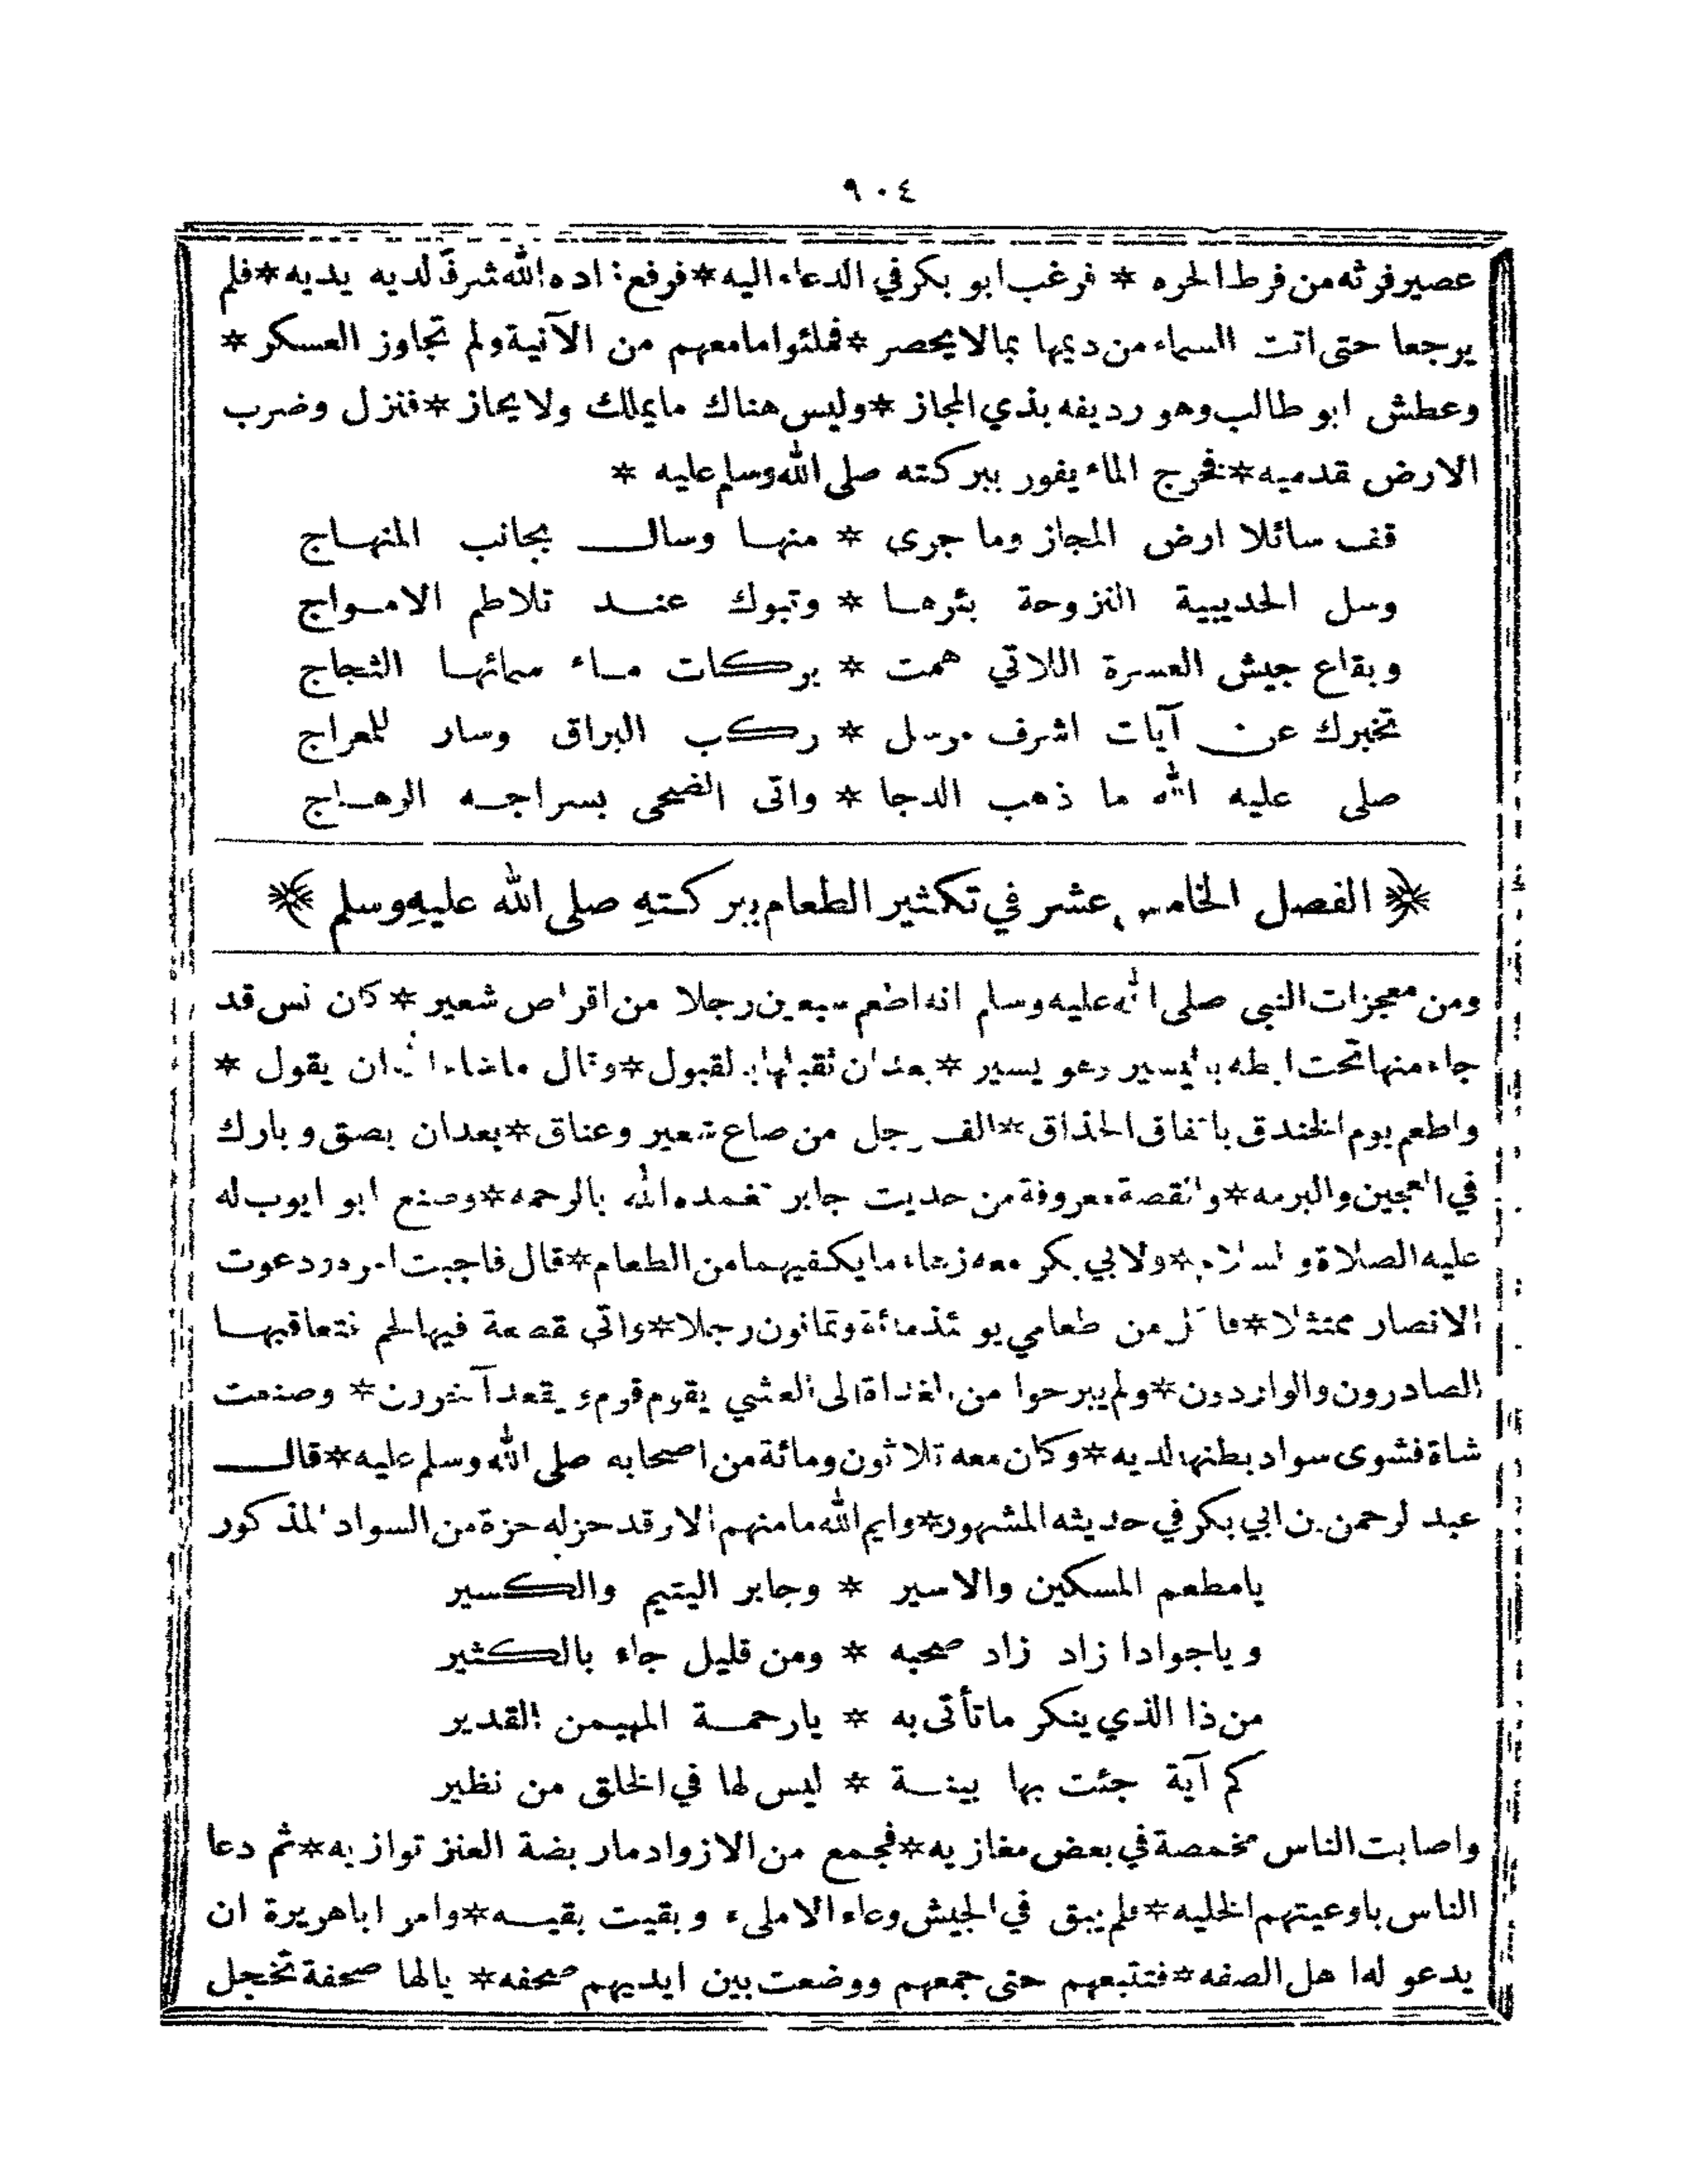 ٩٠٤
عصير فرثه من فرط الحره * فرغب ابو بكر في الدعاء اليه * فرفع زاده الله شرفا لديه يديه * فلم
يرجعا حتى اتت السماء من ديمها بمالا يحصر * فملئوا مامعهم من الآنية ولم تجاوز العسكر *
وعطش ابو طالب وهو رديفه بذي المجاز * وليس هناك مايملك ولا يحاز * فنزل وضرب
الارض قدميه * فخرج الماء يفور ببركته صلى الله وسلم عليه *
قف سائلا ارض المجاز وما جرى * منها وسال بجانب المنهاج
وسل الحديبية النزوحة بئرها * وتبوك عند تلاطم الامواج
وبقاع جيش العسرة اللاتي همت * بركات ماء سمائها الثجاج
تخبرك عن آيات اشرف مرسل * ركب البراق وسار للمعراج
صلى عليه الله ما ذهب الدجا * واتى الضحى بسراجه الوهاج
الفصل الخامس عشر في تكثير الطعام ببركتهِ صلى الله عليهِ وسلم
ومن معجزات النبي صلى الله عليه وسلم انه اطعم سبعين رجلا من اقراص شعير * كان نس قد
جاء منها تحت ابطه باليسير وهو يسير * بعد ان تقبلها بالقبول * وقال ماشاء الله ان يقول *
واطعم يوم الخندق باتفاق الحذاق * الف رجل من صاع شعير وعناق * بعدان بصق وبارك
في العجين والبرمه * والقصة معروفة من حديث جابر تغمده الله بالرحمه * وصنع ابو ايوب له
عليه الصلاة والسلام * ولابي بكر معه زهاء مايكفيهما من الطعام * قال فاجبت امره ودعوت
الانصار ممتثلا * فاكل من طعامي يومئذ مائة وثمانون رجلا * واتي بقصعة فيها لحم فتعاقبها
الصادرون والواردون * ولم يبرحوا من الغداة الى العشي يقوم قوم ويقعد آخرون * وصنعت
شاة فشوى سواد بطنها لديه * وكان معه ثلاثون ومائة من اصحابه صلى الله وسلم عليه * قال
عبد الرحمن بن ابي بكر في حديثه المشهور * وايم الله مامنهم الا وقد حز له حزة من السواد المذكور
يامطعم المسكين والاسير * وجابر اليتيم والكسير
وياجوادا زاد زاد صحبه * ومن قليل جاء بالكثير
من ذا الذي ينكر ماتأتى به * يارحمة المهيمن القدير
كم آية جئت بها بينة * ليس لها في الخلق من نظير
واصابت الناس مخمصة في بعض مغازيه * فجمع من الازواد مار بضة العنز توازيه * ثم دعا
الناس باوعيتهم الخليه * فلم يبق في الجيش وعاء الا ملىء وبقيت بقيه * وامر اباهريرة ان
يدعو له اهل الصفه * فتتبعهم حتى جمعهم ووضعت بين ايديهم صحفه * يالها صحفة تخجل